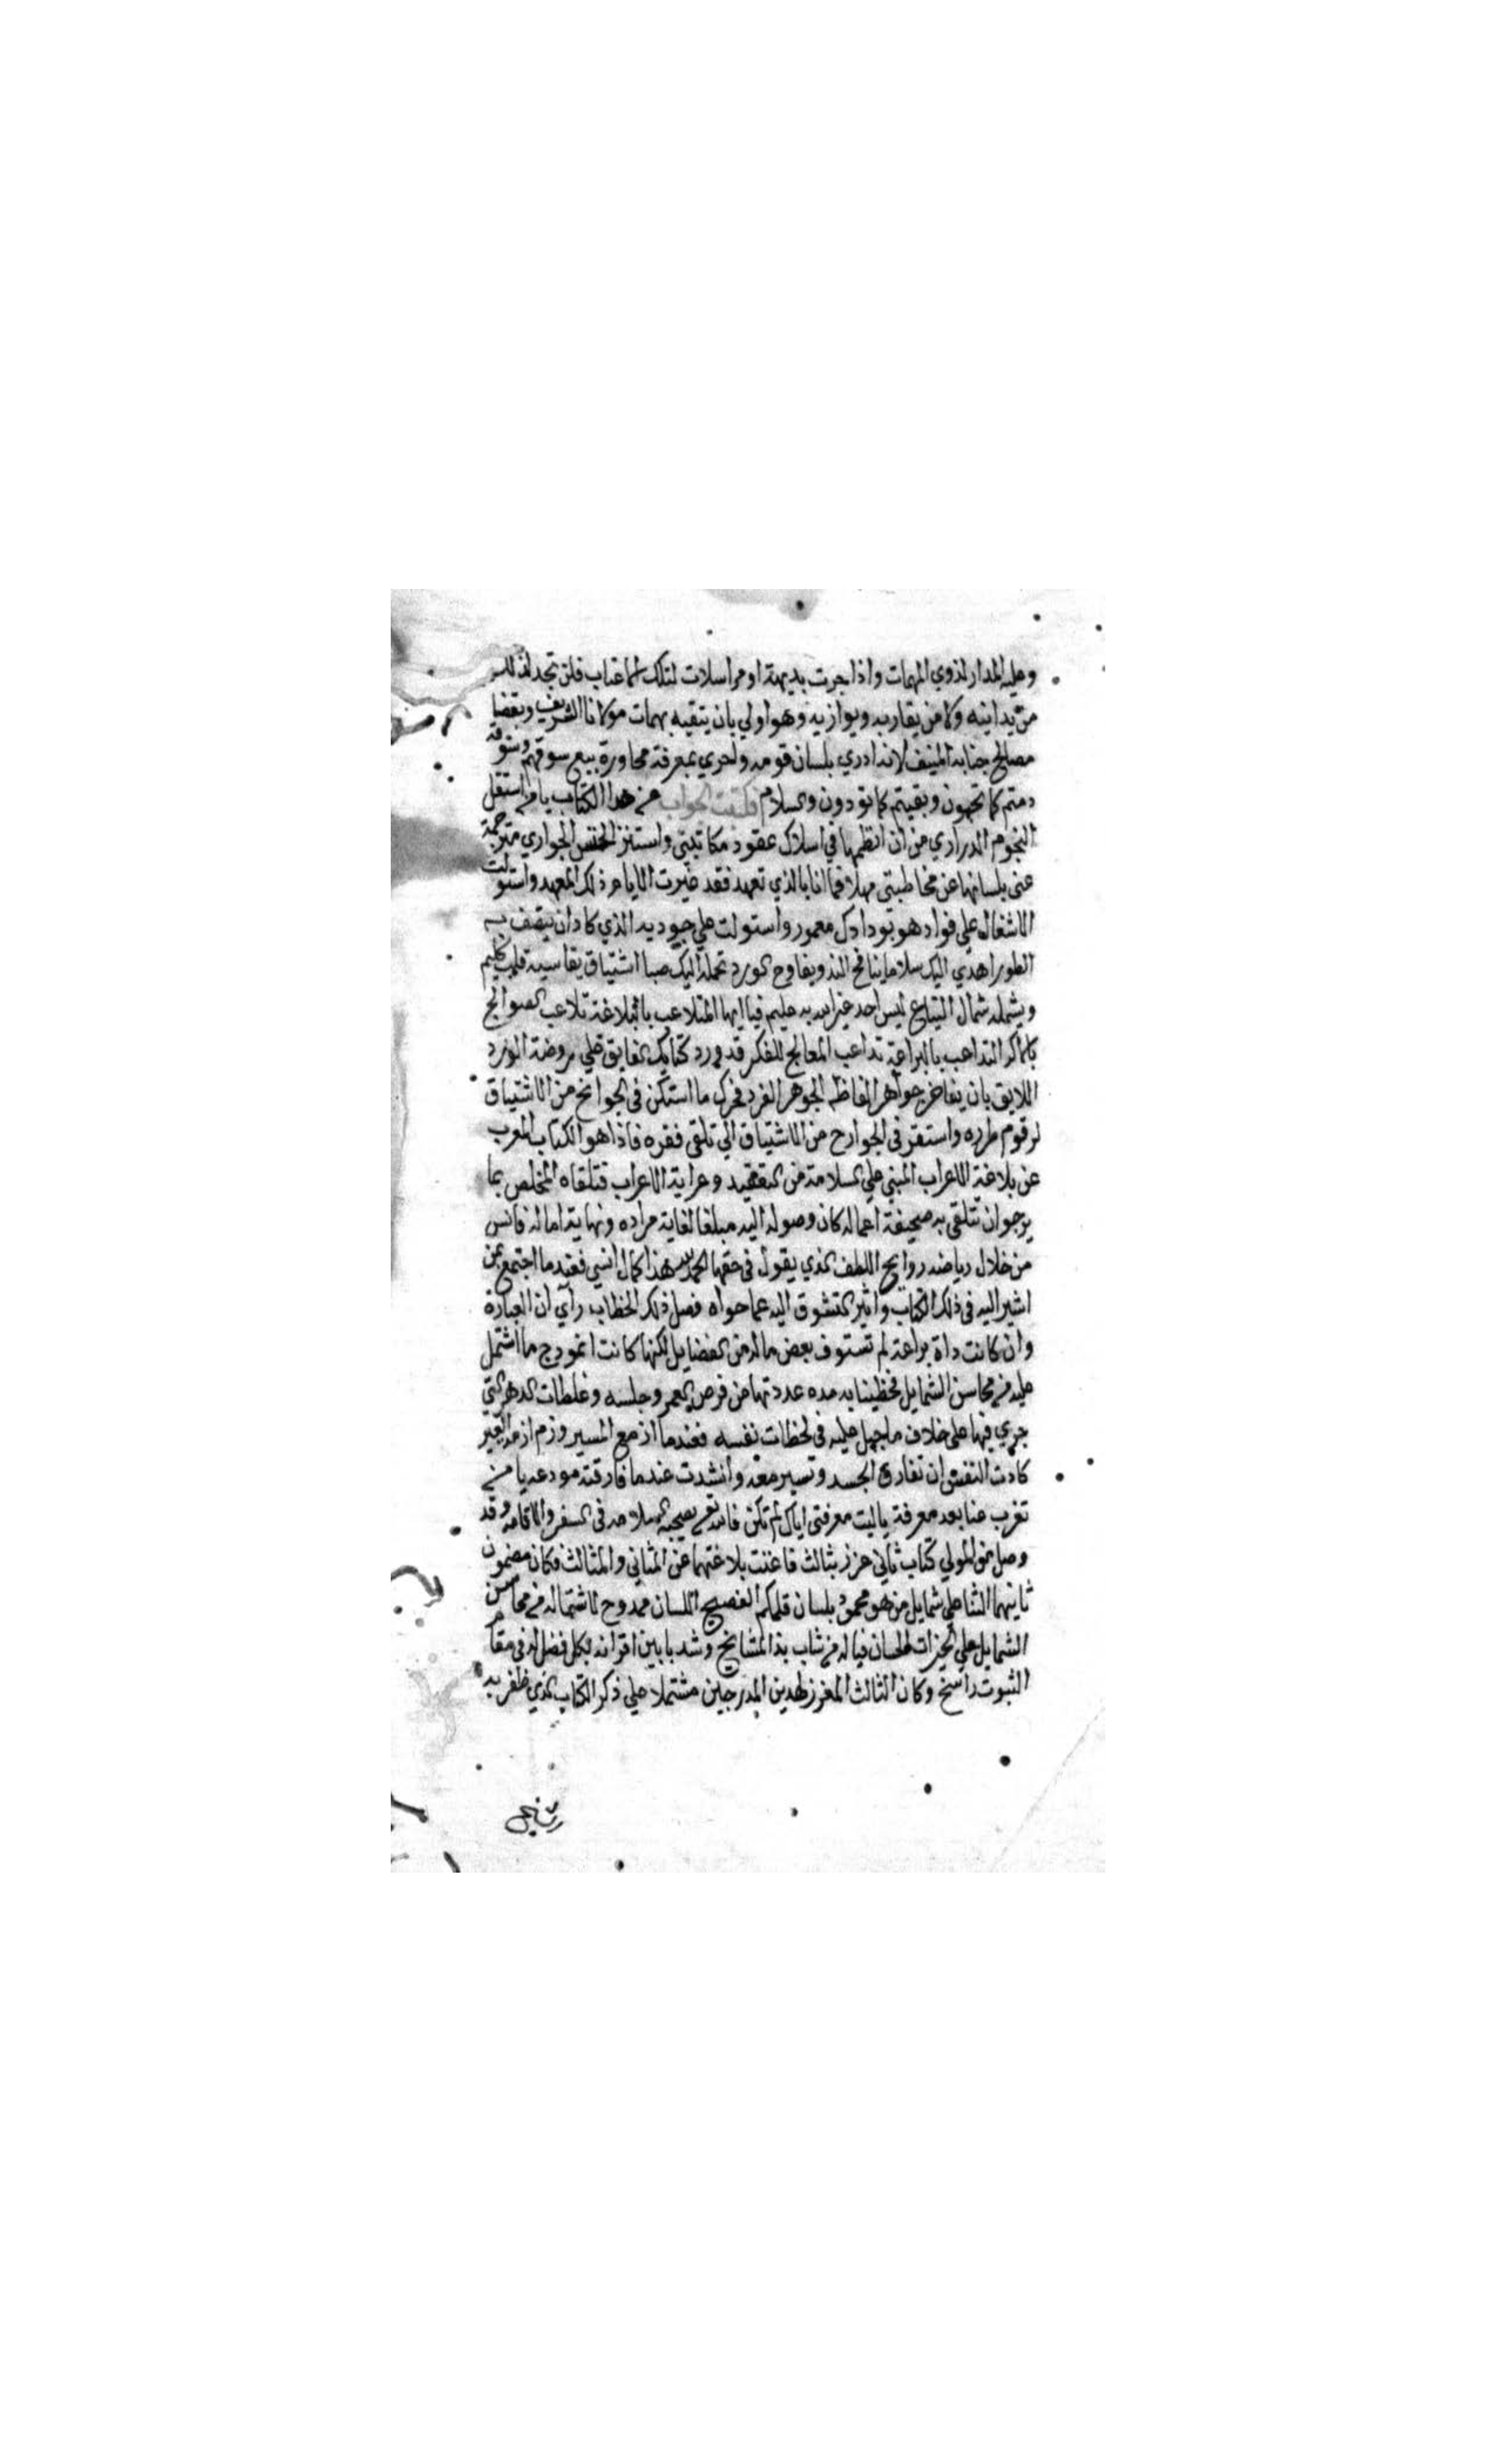 وعليه المدار لذوي المهمات واذا جرت بديهة او مراسلات لتلك الاعتاب فلن تجد لذلك
من يدانيه ولا من يقاربه ويوازيه وهو اولي بان يتقيد بمهمات مولانا الشريف وبقضا
مصالح جنابه المنيف لانه ادري بلسان قومه واحري بمعرفة محاورة بيع سوقهم وسوقه
دمتم كما تحبون وبقيتم كما تودون والسلام فكتبت الجواب عن هذا الكتاب يا من استقل
النجوم الدراري من ان انظمها في اسلاك عقود مكاتبتي واستنزر الخنس الجواري مترجمة
عني بلسانها عن مخاطبتي مهلا فما انا بالذي تعهد فقد غيرت الايام ذلك المعهد واستولت
الاشغال علي فواد هو بودادك معمور واستولت علي جوديه الذي كاد ان يتصف به
الطور اهدي اليك سلاما ينافح الند ويفاوح الورد تحمله اليك صبا اشتياق يقاسيه قلب كليم
ويشمله شمال التياع ليس احد غير الله به عليم فيا ايها المتلاعب بالبلاغة تلاعب الصوالج
بالاكر المتداعب بالبراعة تداعب المعالج للفكر قد ورد كتابك الفايق علي روضة الورد
اللايق بان يفاخر جواهر الفاظه الجوهر الفرد فحرك ما استكن في الجوانح من الاشتياق
لرقوم طرره واستقر في الجوارح من الاشتياق الي تلقي فقره فاذا هو الكتاب المعرب
عن بلاغة الاعراب المبني علي السلامة من التعقيد وعراية الاعراب فتلقاه المخلص بما
يرجو ان تتلقي به صحيفة اعماله كان وصوله اليه مبلغا لغاية مراده ونهاية اماله فانس
من خلال رياضه روايح اللطف الذي يقول في حقها الحمد لله هذا كمال انسي فعندما اجتمع بمن
اشير اليه في ذلك الكتاب واثير التشوق اليه عما حواه فصل ذلك الخطاب رآي ان العبارة
وان كانت داة براعة لم تستوف بعض ماله من الفضايل لكنها كانت انمودج ما اشتمل
عليه من محاسن الشمايل فحظينا به مده عددتها من فرص العمر وخلسه وغلطات الدهر التي
جري فيها علي خلاف ما جبل عليه في لحظات نفسه فعندما ازمع المسير وزم ازمة العير
كادت النفس ان تفارق الجسد وتسير معه وانشدت عندما فارقته مودعه يا من
تغرب عنا بعد معرفة ياليت معرفتي اياك لم تكن فالله تعالى يصحبه السلامه في السفر والاقامه وقد
وصل من المولي كتاب ثاني عزز بثالث فاغنت بلاغتهما عن المثاني والمثالث فكان مضمون
ثانيهما الثنا علي شمايل من هو محمود بلسان قلمكم الفصيح اللسان ممدوح لاشتماله من محاسن
الشمايل علي الخيرات الحسان فيا له من شاب بذ المشايخ وشد بابين اقرانه بكل فضل له في مقام
الثبوت راسخ وكان الثالث المعزز لهدين المدرجين مشتملا علي ذكر الكتاب الذي ظفر به